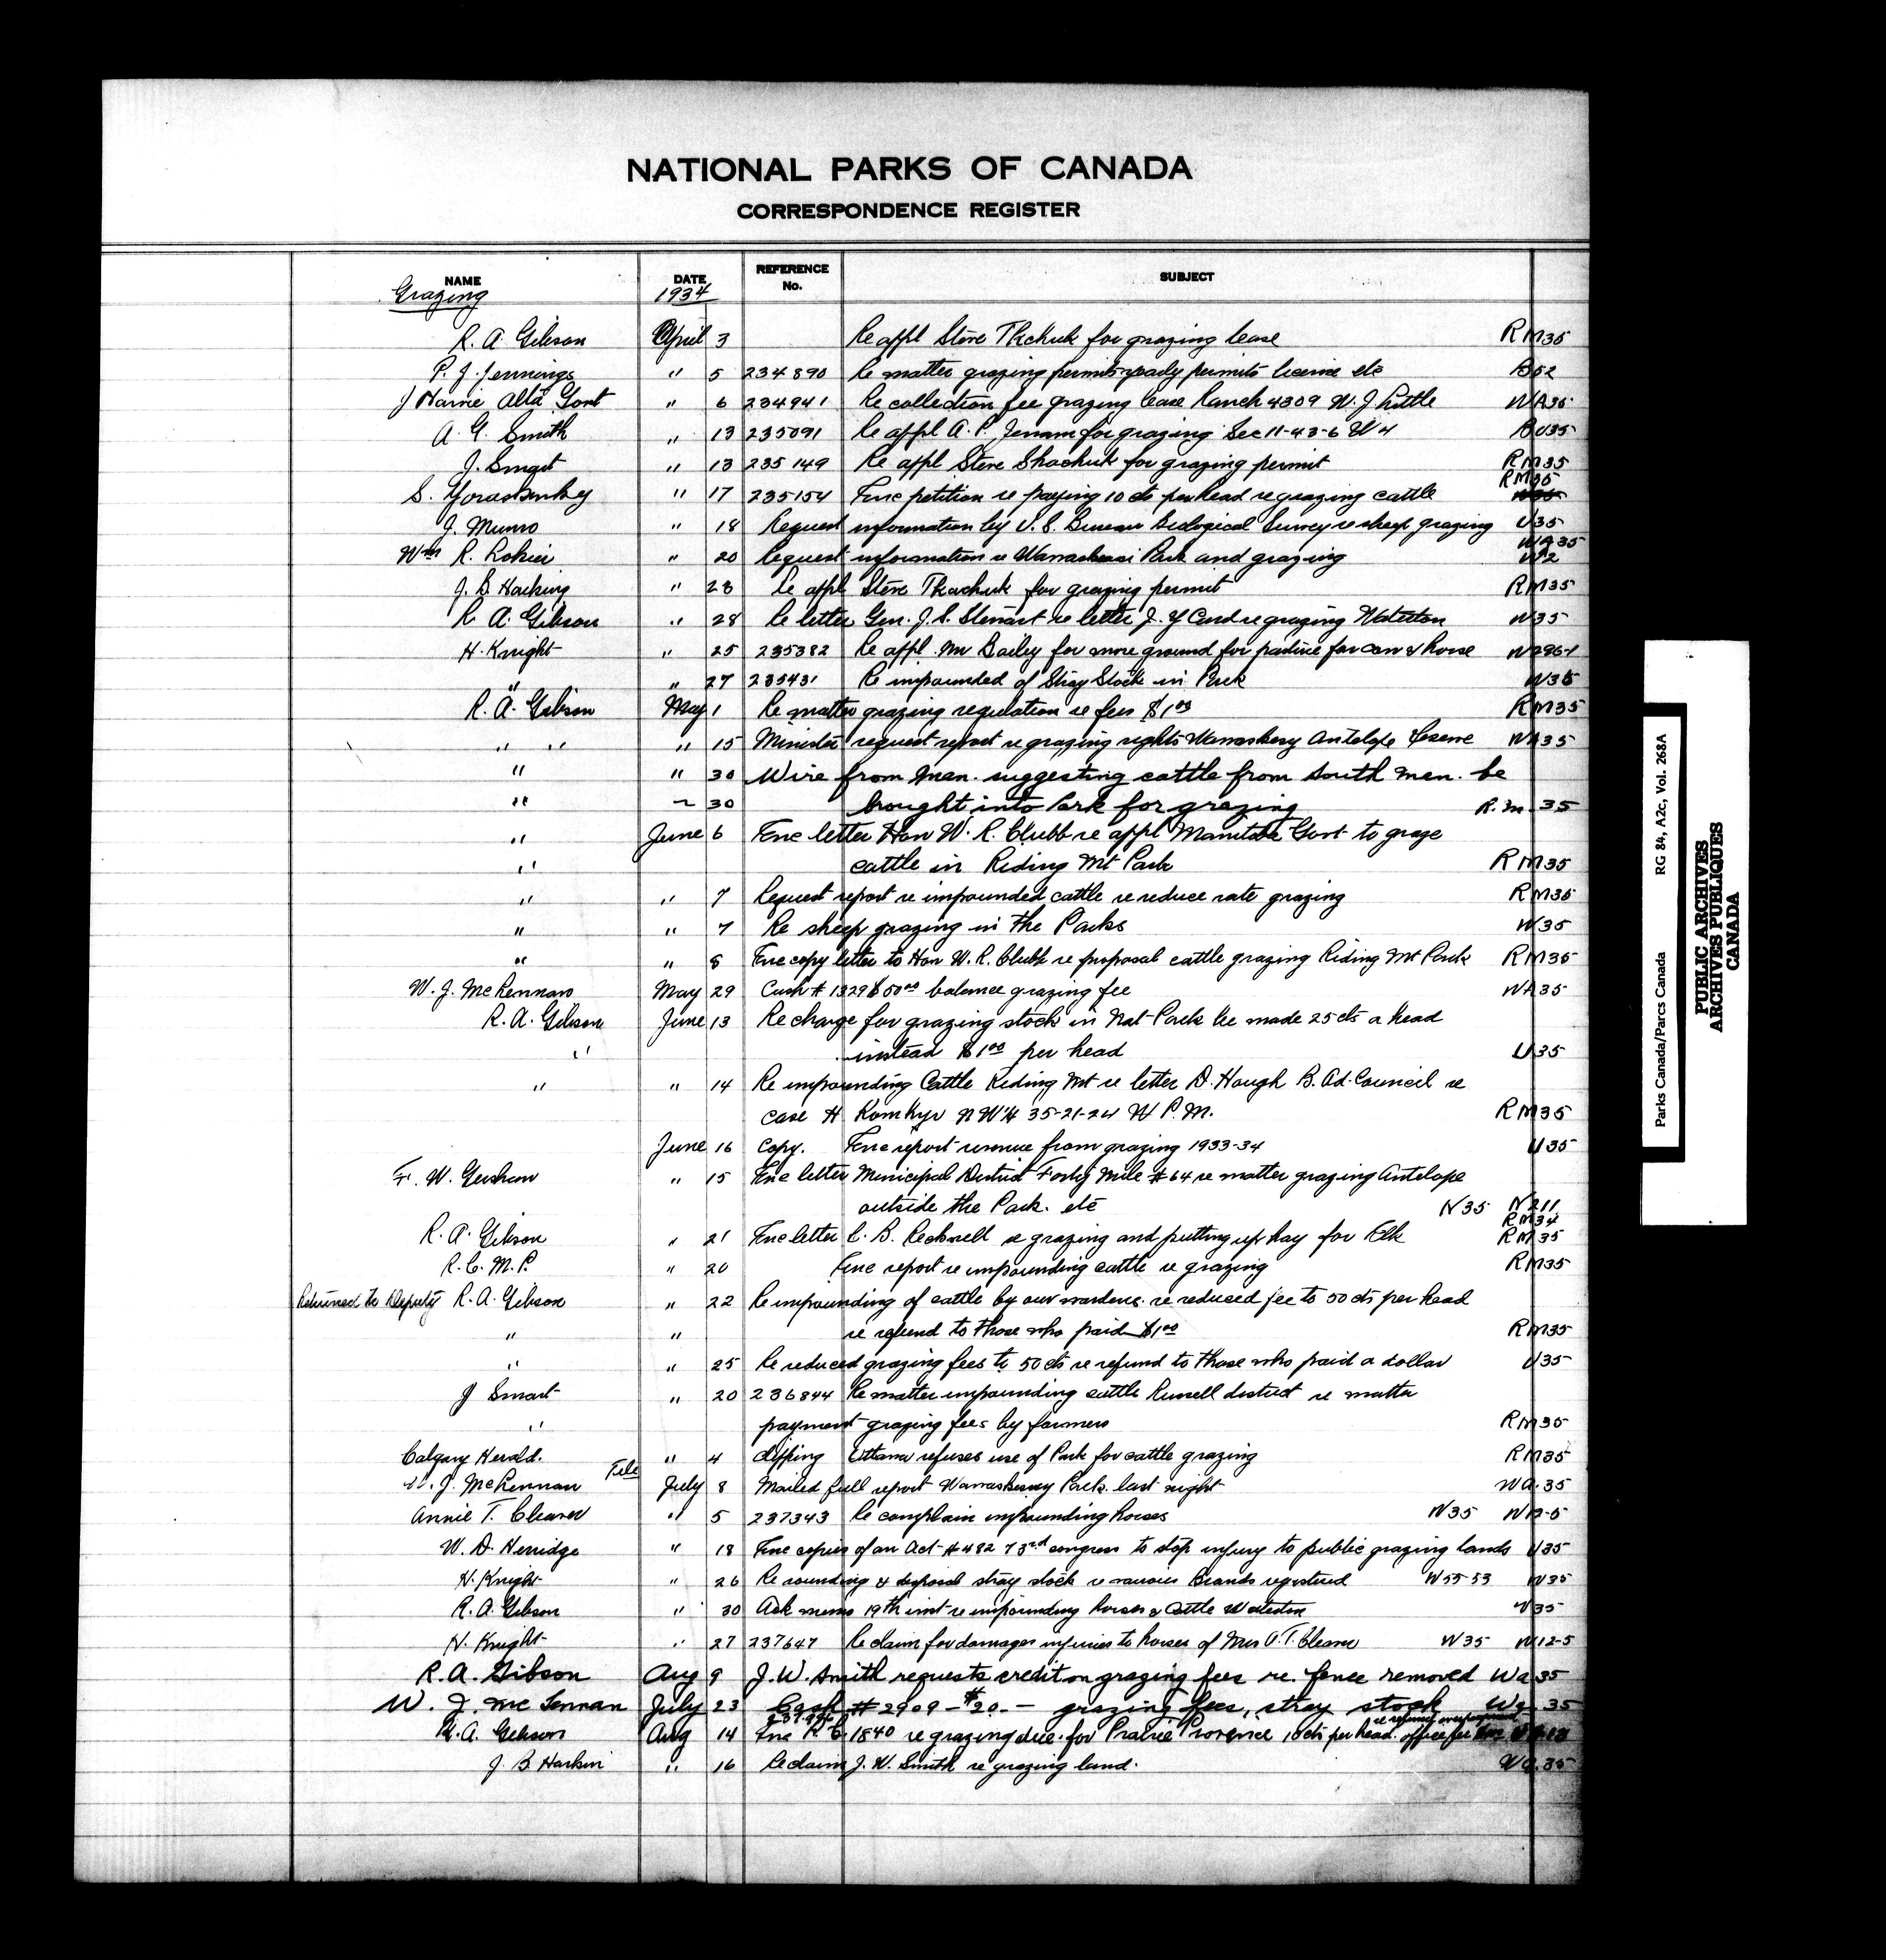 NATIONAL PARKS OF CANADA
CORRESPONDENCE REGISTER
NAME DATE REFERENCE No. SUBJECT
Grazing 1934
R. A. Gibson April 3 Re appl Steve Tkchuk for grazing lease RM35
P. J. Jennings " 5 234890 Re matter grazing permits yearly permits license etc B52
J Harvie Alta Govt " 6 234941 Re collection fee grazing lease Ranch 4309 W. J. Little WA35
A. G. Smith " 13 235091 Re appl A. P. for grazing Sec 11-43-6 W4 BU35
J. Smart " 13 235149 Re appl Steve Shachuk for grazing permit RM35
S. " 17 235154 Enc petition re paying 10 cts per head re grazing cattle RM35
J. Munro " 18 Request information by U.S. Bureau Biological Survey re sheep grazing U35
Wm R. " 20 Request information re Park and grazing WA35 W2
J. B. Harking " 23 Re appl Steve Tkachuk for grazing permit RM35
R. A. Gibson " 28 Re letter Gen. J. S. Stewart re letter J. Y Card re grazing Waterton W35
H. Knight " 25 235382 Re appl. Mr Bailey for more ground for pasture for cow & horse W296-1
" " 27 235431 Re impounded of Stray Stock in Park W35
R. A. Gibson May 1 Re matter grazing regulation re fees $1.00 RM35
" " " 15 Minister request report re grazing rights Antelope Reserve WA35
" " 30 Wire from Man. suggesting cattle from South Man. be
" ~ 30 brought into Park for grazing R.M. 35
" June 6 Enc letter Hon W. R. Clubb re appl Manitoba Govt to graze
" cattle in Riding Mt Park RM35
" " 7 Request report re impounded cattle re reduce rate grazing RM35
" " 7 Re sheep grazing in the Parks W35
" " 8 Enc copy letter to Hon W. R. Clubb re proposal cattle grazing Riding Mt Park RM35
W. J. McLennan May 29 Cash # 1329 $50.00 balance grazing fee WA35
R. A. Gibson June 13 Re charge for grazing stock in Nat Park be made 25 cts a head
" instead $1.00 per head U35
" " 14 Re impounding Cattle Riding Mt re letter D. Hough B. Ad. Council re
case H Komkyr NW¼ 35-21-24 W P.M. RM35
June 16 Copy. Enc report revenue from grazing 1933-34 U35
F. W. Gershaw " 15 Enc letter Municipal District Forty Mile #64 re matter grazing Antelope
outside the Park. etc N35 N211
RM34
R. A. Gibson " 21 Enc letter C. B. re grazing and putting up hay for Elk RM35
R. C. M. P. " 20 Enc report re impounding cattle re grazing RM35
Returned to Deputy R. A. Gibson " 22 Re impounding of cattle by our wardens. re reduced fee to 50 cts per head
" " re refund to those who paid $1.00 RM35
" " 25 Re reduced grazing fees to 50 cts re refund to those who paid a dollar U35
J Smart " 20 236844 Re matter impounding cattle Russell district re matter
" payment grazing fees by farmers RM35
Calgary Herald. " 4 clipping Ottawa refuses use of Park for cattle grazing RM35
W. J. McLennan File July 8 Mailed full report Park. last night Wa. 35
Annie T. Cleaver " 5 237343 Re complain impounding horses W35 W12-5
W. D. Herridge " 18 Enc copies of an Act #482 73rd congress to stop injury to public grazing lands U35
H. Knight " 26 Re rounding & disposal stray stock re various Brands registered W55-53 W35
R. A. Gibson " 30 Ack memo 19th inst re impounding horses & Cattle Waterton W35
H. Knight " 27 237647 Re claim for damages injuries to horses of Mrs A. T. Cleaver W35 W12-5
R. A. Gibson Aug 9 J. W. Smith requests credit on grazing fees re. fence removed Wa 35
W. J. McLennan July 23 Cash #2909 - $20. - grazing fees, stray stock Wa. 35
R. A. Gibson Aug 14 Enc P. C. 1840 re grazing due. for Prairie Provence 10 cts per head. office fee
J. B. Harkin " 16 Re claim J. W. Smith re grazing land. Wa. 35
Parks Canada/Parcs Canada RG 84, A2c, Vol. 268A
PUBLIC ARCHIVES
ARCHIVES PUBLIQUES
CANADA